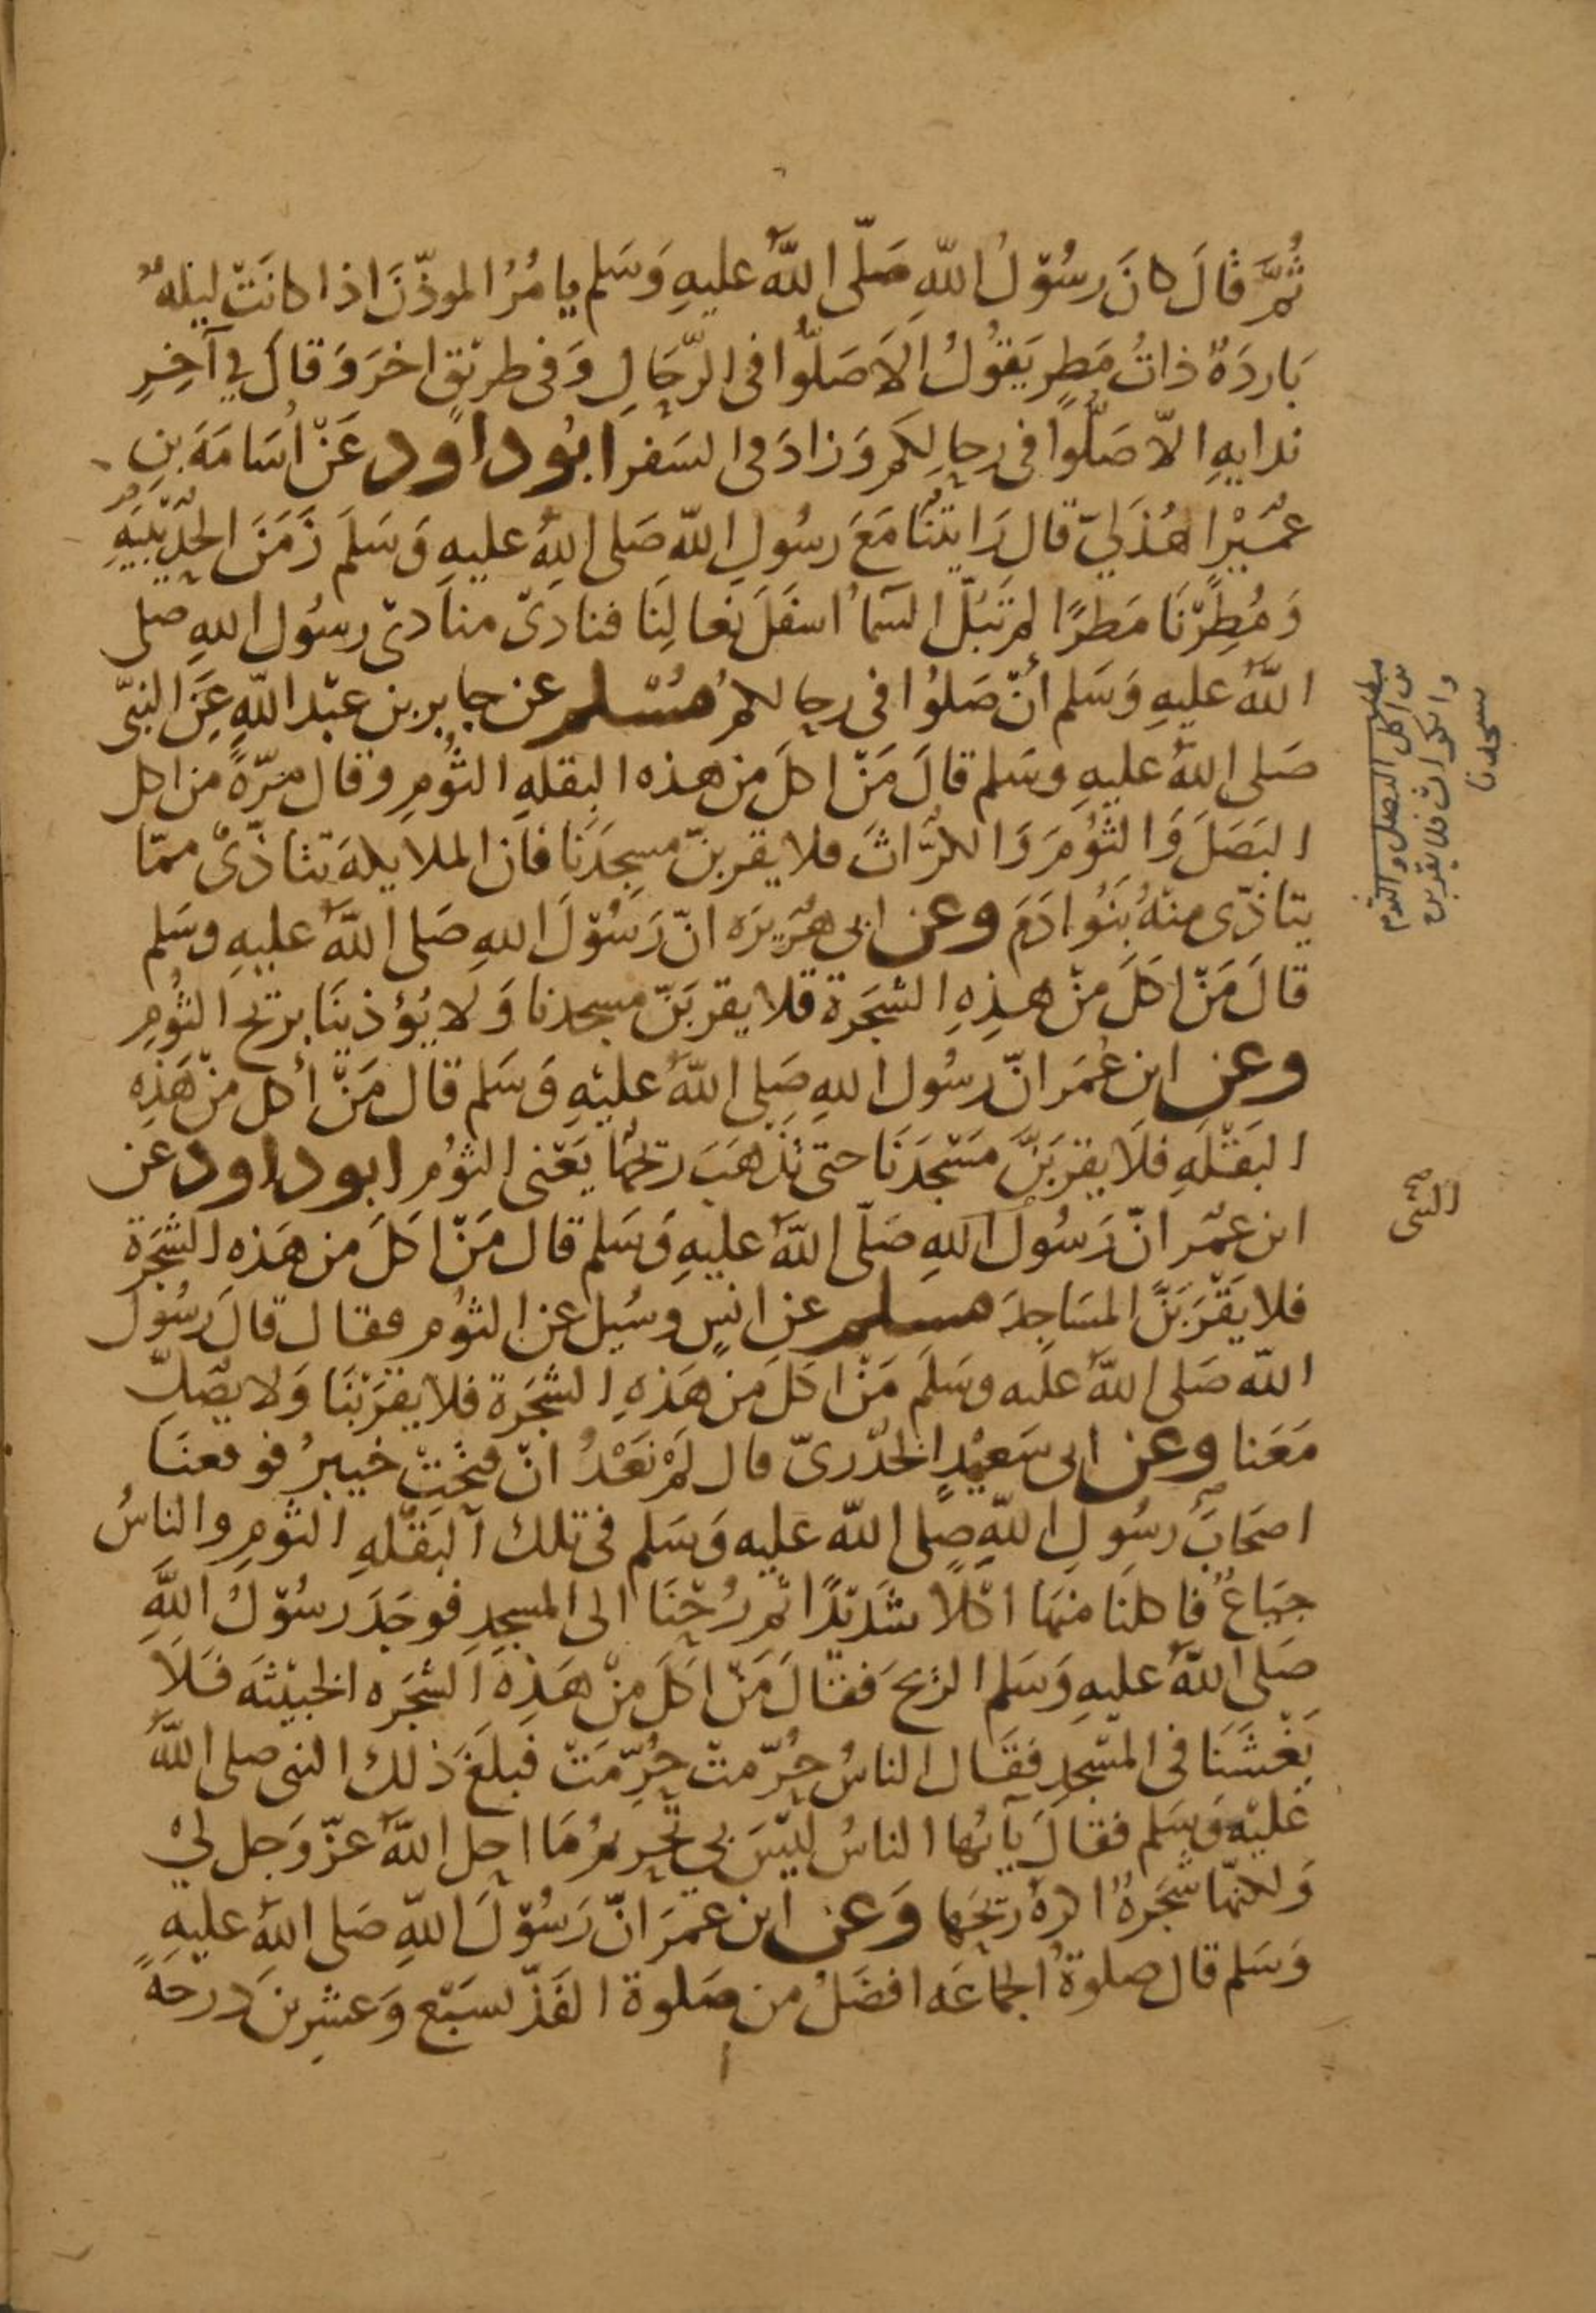 ثُمَّ قالَ كانَ رسُوْلُ اللّهِ صَلّى اللّهُ عليهِ وَسَلم يامُرُ الموذّنَ اذا كانَتْ ليلَةٌ
بَاردَةٌ ذاتُ مَطرٍ يَقوُلُ الَا صَلُّوا فى الرّحَالِ وَفى طريْقٍ اخرَ وَقالَ في آخِرِ
ندايهِ الاّ صَلُّوا فى رحالِكم وَزادَ فى السَفر ابُوداود عَنْ أُسَامَةَ بنِ
عمَيْرٍ الهُذَليّ قال رَايتنُا مَعَ رسُولِ اللّه صَلى اللهُ عليهِ وَسَلمَ زَمَنَ الحُدَيْبيَهِ
وَمُطِرْنَا مَطرًا لم تَبُلّ السَمآُ اسفَلَ نعَالِنَا فنادَىْ منادىْ رسُول اللهِ صلى
اللّهُ عليهِ وَسَلم أنْ صَلوُا فى رحالكمُ مُسْلم عن جابر بن عبْد اللّهِ عَنِ النبّى
صَلى اللهُ عليهِ وسَلم قالَ مَنْ اكلَ من هذه البقلهِ الثُومِ وقال مَرّةً من اكل
البَصَلَ وَالثُوْمَ وَالكُرَّاثَ فلا يقربنّ مسِجدَنَا فان الملايكهَ تتاذّىُ ممّا
يتاذّى منْهُ بَنُوا ادَمَ وعن ابى هُرَيرَه انّ رَسُوْلَ اللهِ صَلى اللّهُ عليهِ وسَلم
قالَ مَنْ اكَلَ مِنْ هـذِهِ الشجَرة فلا يقربَنّ مسجدنا وَلا يُؤذينَا بريْح الثوُمِ
وعن ابن عُمَر انّ رسُول اللهِ صَلى اللّهُ عليْهِ وَسَلم قال مَنْ أكل منْ هَذِه
البَقْلَهِ فلَا يقرَبَنَّ مَسْجدَنَا حتى يَذْهَبَ ريحُها يَعْنى الثوُم ابوداود عن
ابن عمُر انّ رَسُولَ اللهِ صَلّى اللّهُ عليهِ وَسَلم قال مَنْ اكَلَ من هَذه الشجَرَة
فلا يَقْرَبَنَّ المسَاجِدَ مسـلم عن انسٍ وسُيل عن الثوُم فقال قالَ رَسُول
اللّه صَلى اللّهُ عليه وسَلَم مَنْ اكَلَ من هَذهِ الشجَرة فلا يقرَبْنَا وَلا يصَلِّ
مَعَنا وعن ابى سَعيْدٍ الخُدْرىّ قال لَمْ نعَدُ انْ فتحَتْ خيبرُ فوقعنَا
اصحَابَ رسُولِ اللّهِ صلى اللّه عليه وَسَلم فى تلك البَقْلهِ الثومِ والناسُ
جيَاعٌ فاكلنا منها اكْلًا شَديْدًا ثم رُحْنَا الى المسجدِ فوجَدَ رسُوْلُ اللهِ
صَلى اللّهُ عليهِ وَسَلم الرْيحَ فقَالَ مَنْ اكَلَ مِنْ هَذِهِ الشجَره الخبيْثَه فَلَا
يَغْشَنَا فى المسْجدِ فقَال الناسُ حُرّمتْ حُرِّمَتْ فَبلَغَ ذلك النبى صلى اللّهُ
عَليْهِ وَسَلم فقَالَ يآيهُا الناسُ ليْسَ بي تحْريمُ مَا احل اللّهُ عزّ وَجل لِيْ
وَلكنهّا شجَرةٌ اكرهُ ريحَها وَعن ابن عمَرَ انّ رَسُوْلَ اللّهِ صَلى اللهُ عليهِ
وَسَلم قال صلوةُ الجماعَه افضَلُ من صَلوة الفَذّ بسَبْع وَعشِرينَ درجَةً
من اكل البصل والثوم
والكراث فلا يقربن
مسجدنا
النبى